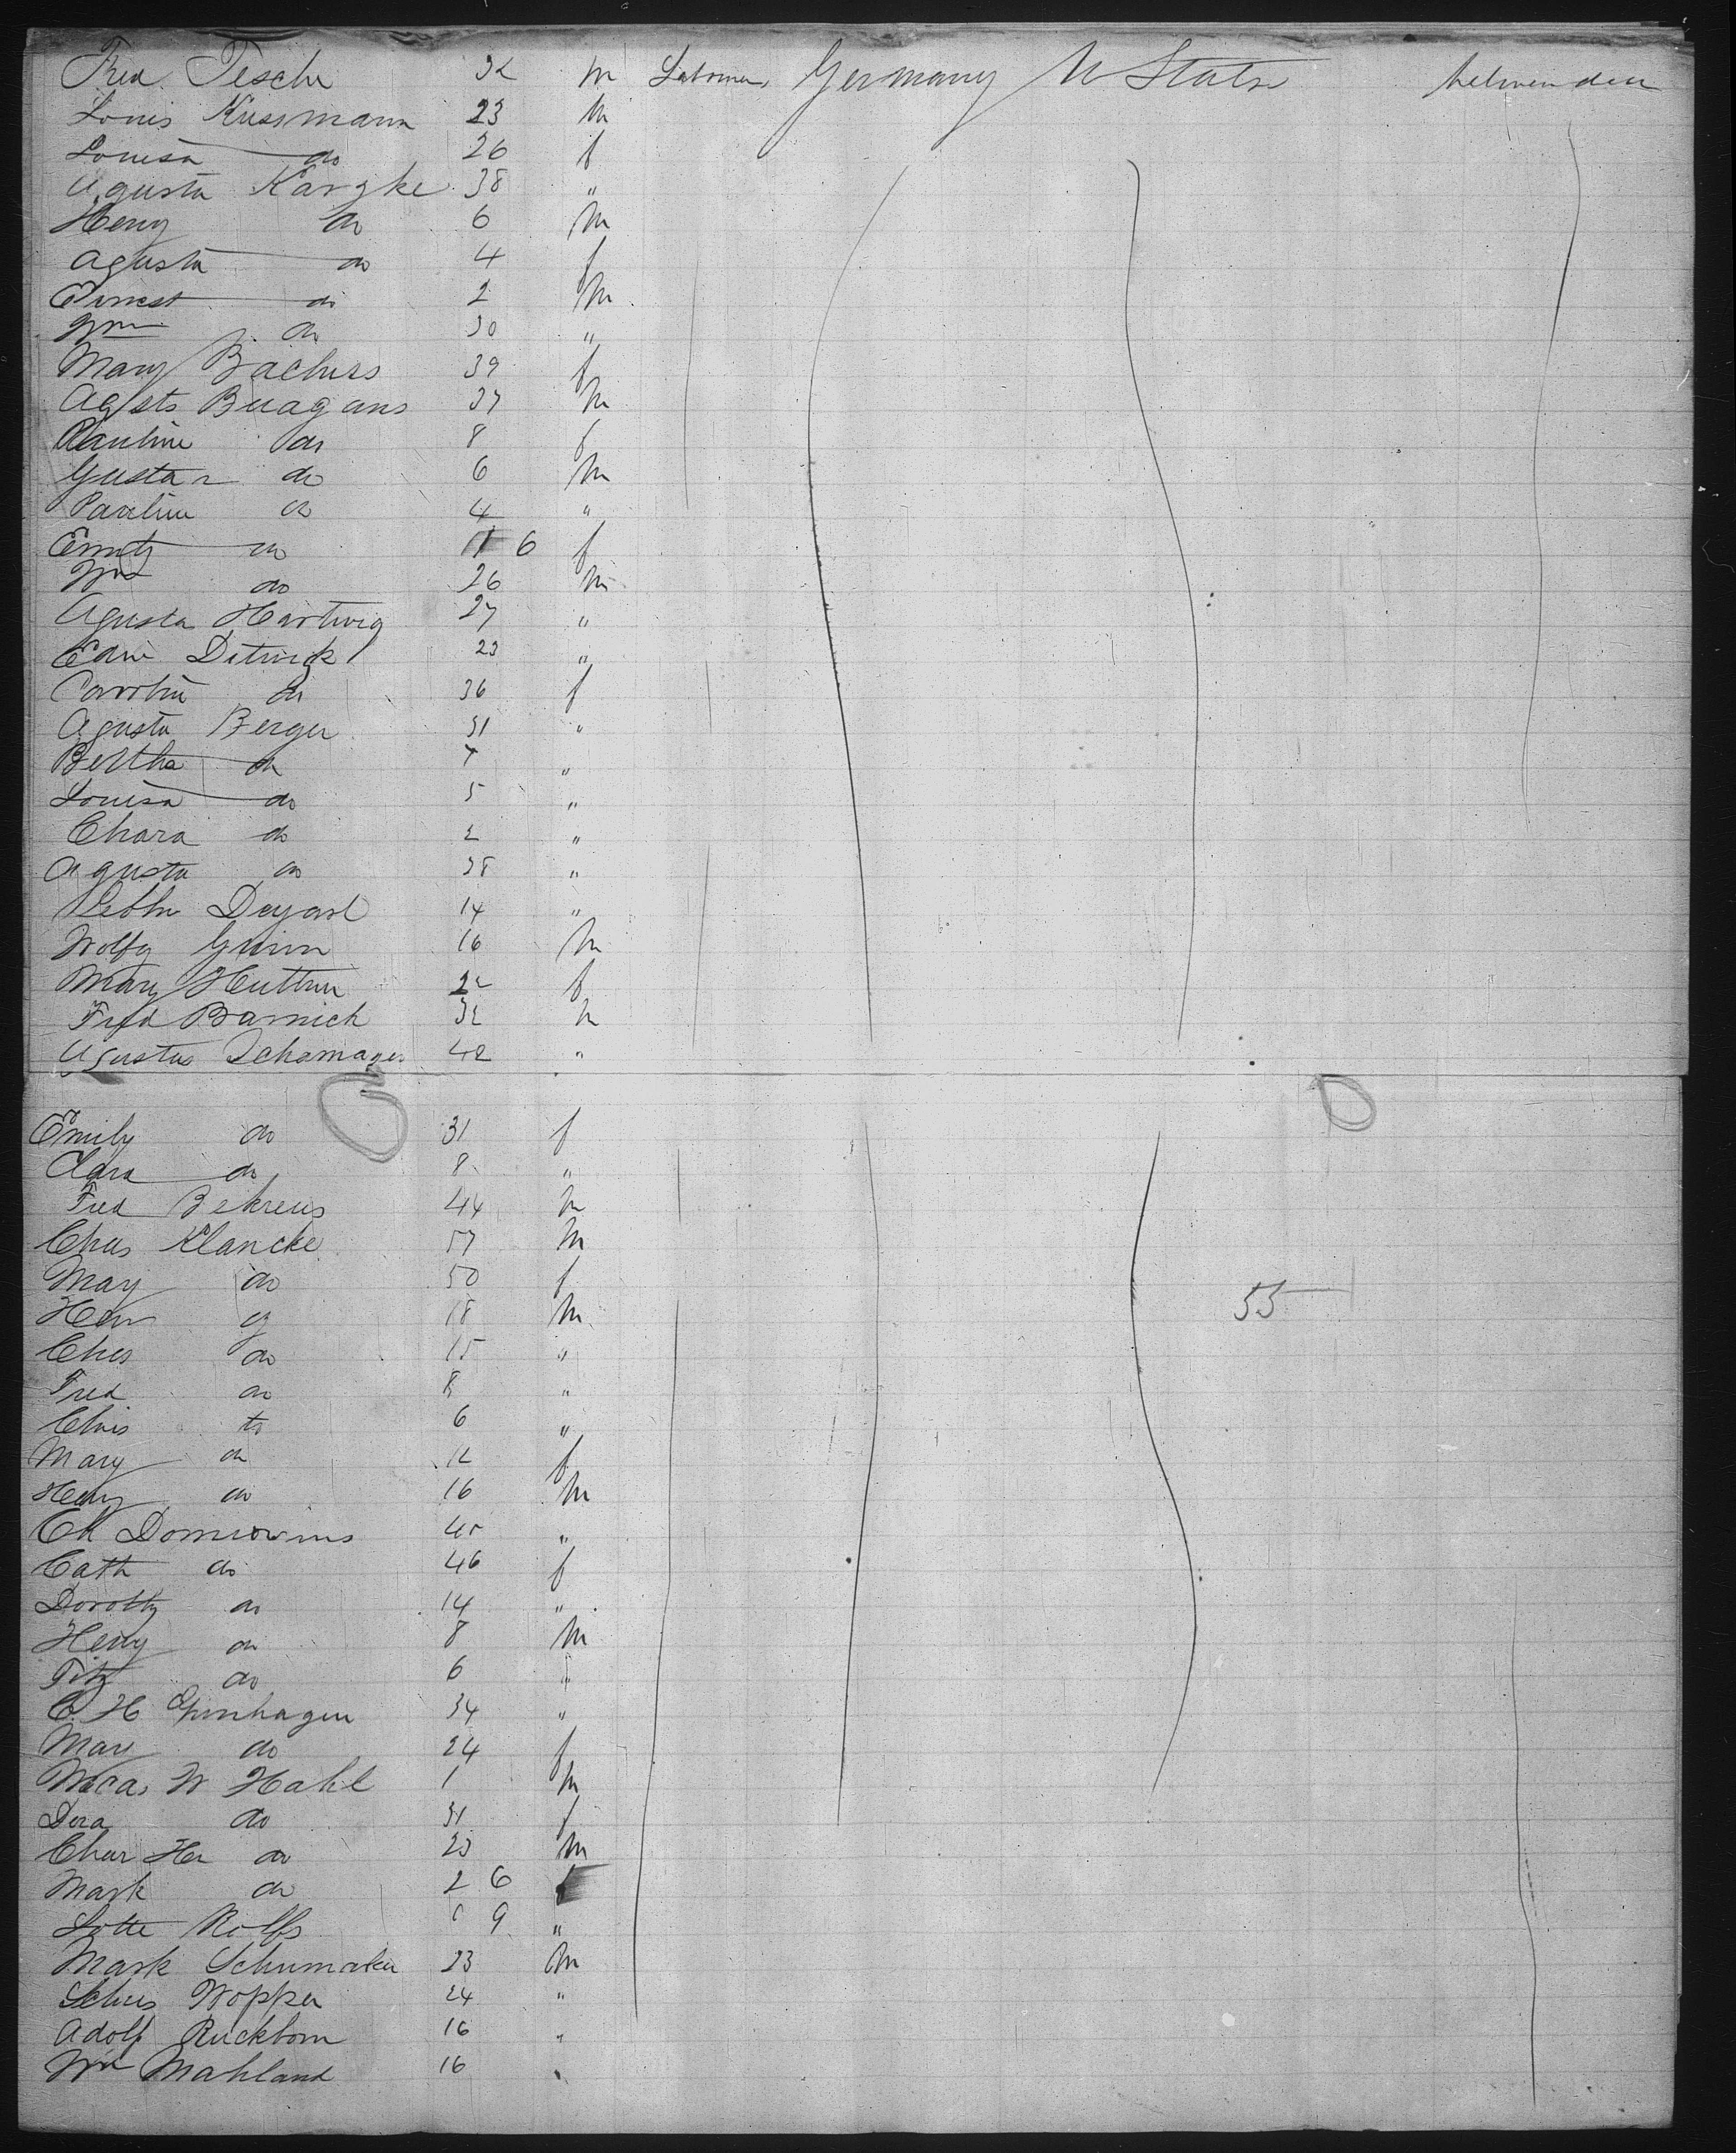 Fred Tesche 32 m Laborer Germany U States between deck
Louis Kussmann 23 m
Louisa do 26 f
Agusta Kargke 38 "
Heny do 6 m
Agusta do 4 f
Ernest do 2 m
Wm do 30 "
Mary Bachuss 39 f
Agsts Buagans 37 m
Pauline do 8 f
Gustav do 6 m
Pauline do 4 "
Emily do 11 6 f
Wm do 26 m
Agusta Hartwig 27 "
Edw Ditwick 23 "
Carolin do 36 f
Agusta Berger 31 "
Bertha do 7 "
Louisa do 5 "
Chara do 2 "
Agusta do 38 "
Deyarl 14 "
Wolfg 16 m
Mary Huttner 22 f
Fred Barnick 32 m
Agustus Schamager 42 "
Emily do 31 f
Clara do 8 "
Fred Behrens 44 m
Chas Klancke 57 m
May do 50 f
Hen y 18 m 55
Chas do 15 "
Fred do 8 "
Chris do 6 "
Mary do 12 f
Heny do 16 m
Ch Domrowins 45 "
Cath do 46 f
Dorothy do 14 "
Heny do 8 m
Fitz do 6 "
C. H Openhagen 34 "
Mary do 24 f
W Hahl 1 m
Dora do 31 f
Char Hn do 23 m
Mark do 2 6 f
Lotte Rolfs 0 9 "
Mark Schumaker 23 m
Wopper 24 "
Adolf Ruckborn 16 "
Wm Mahland 16 "